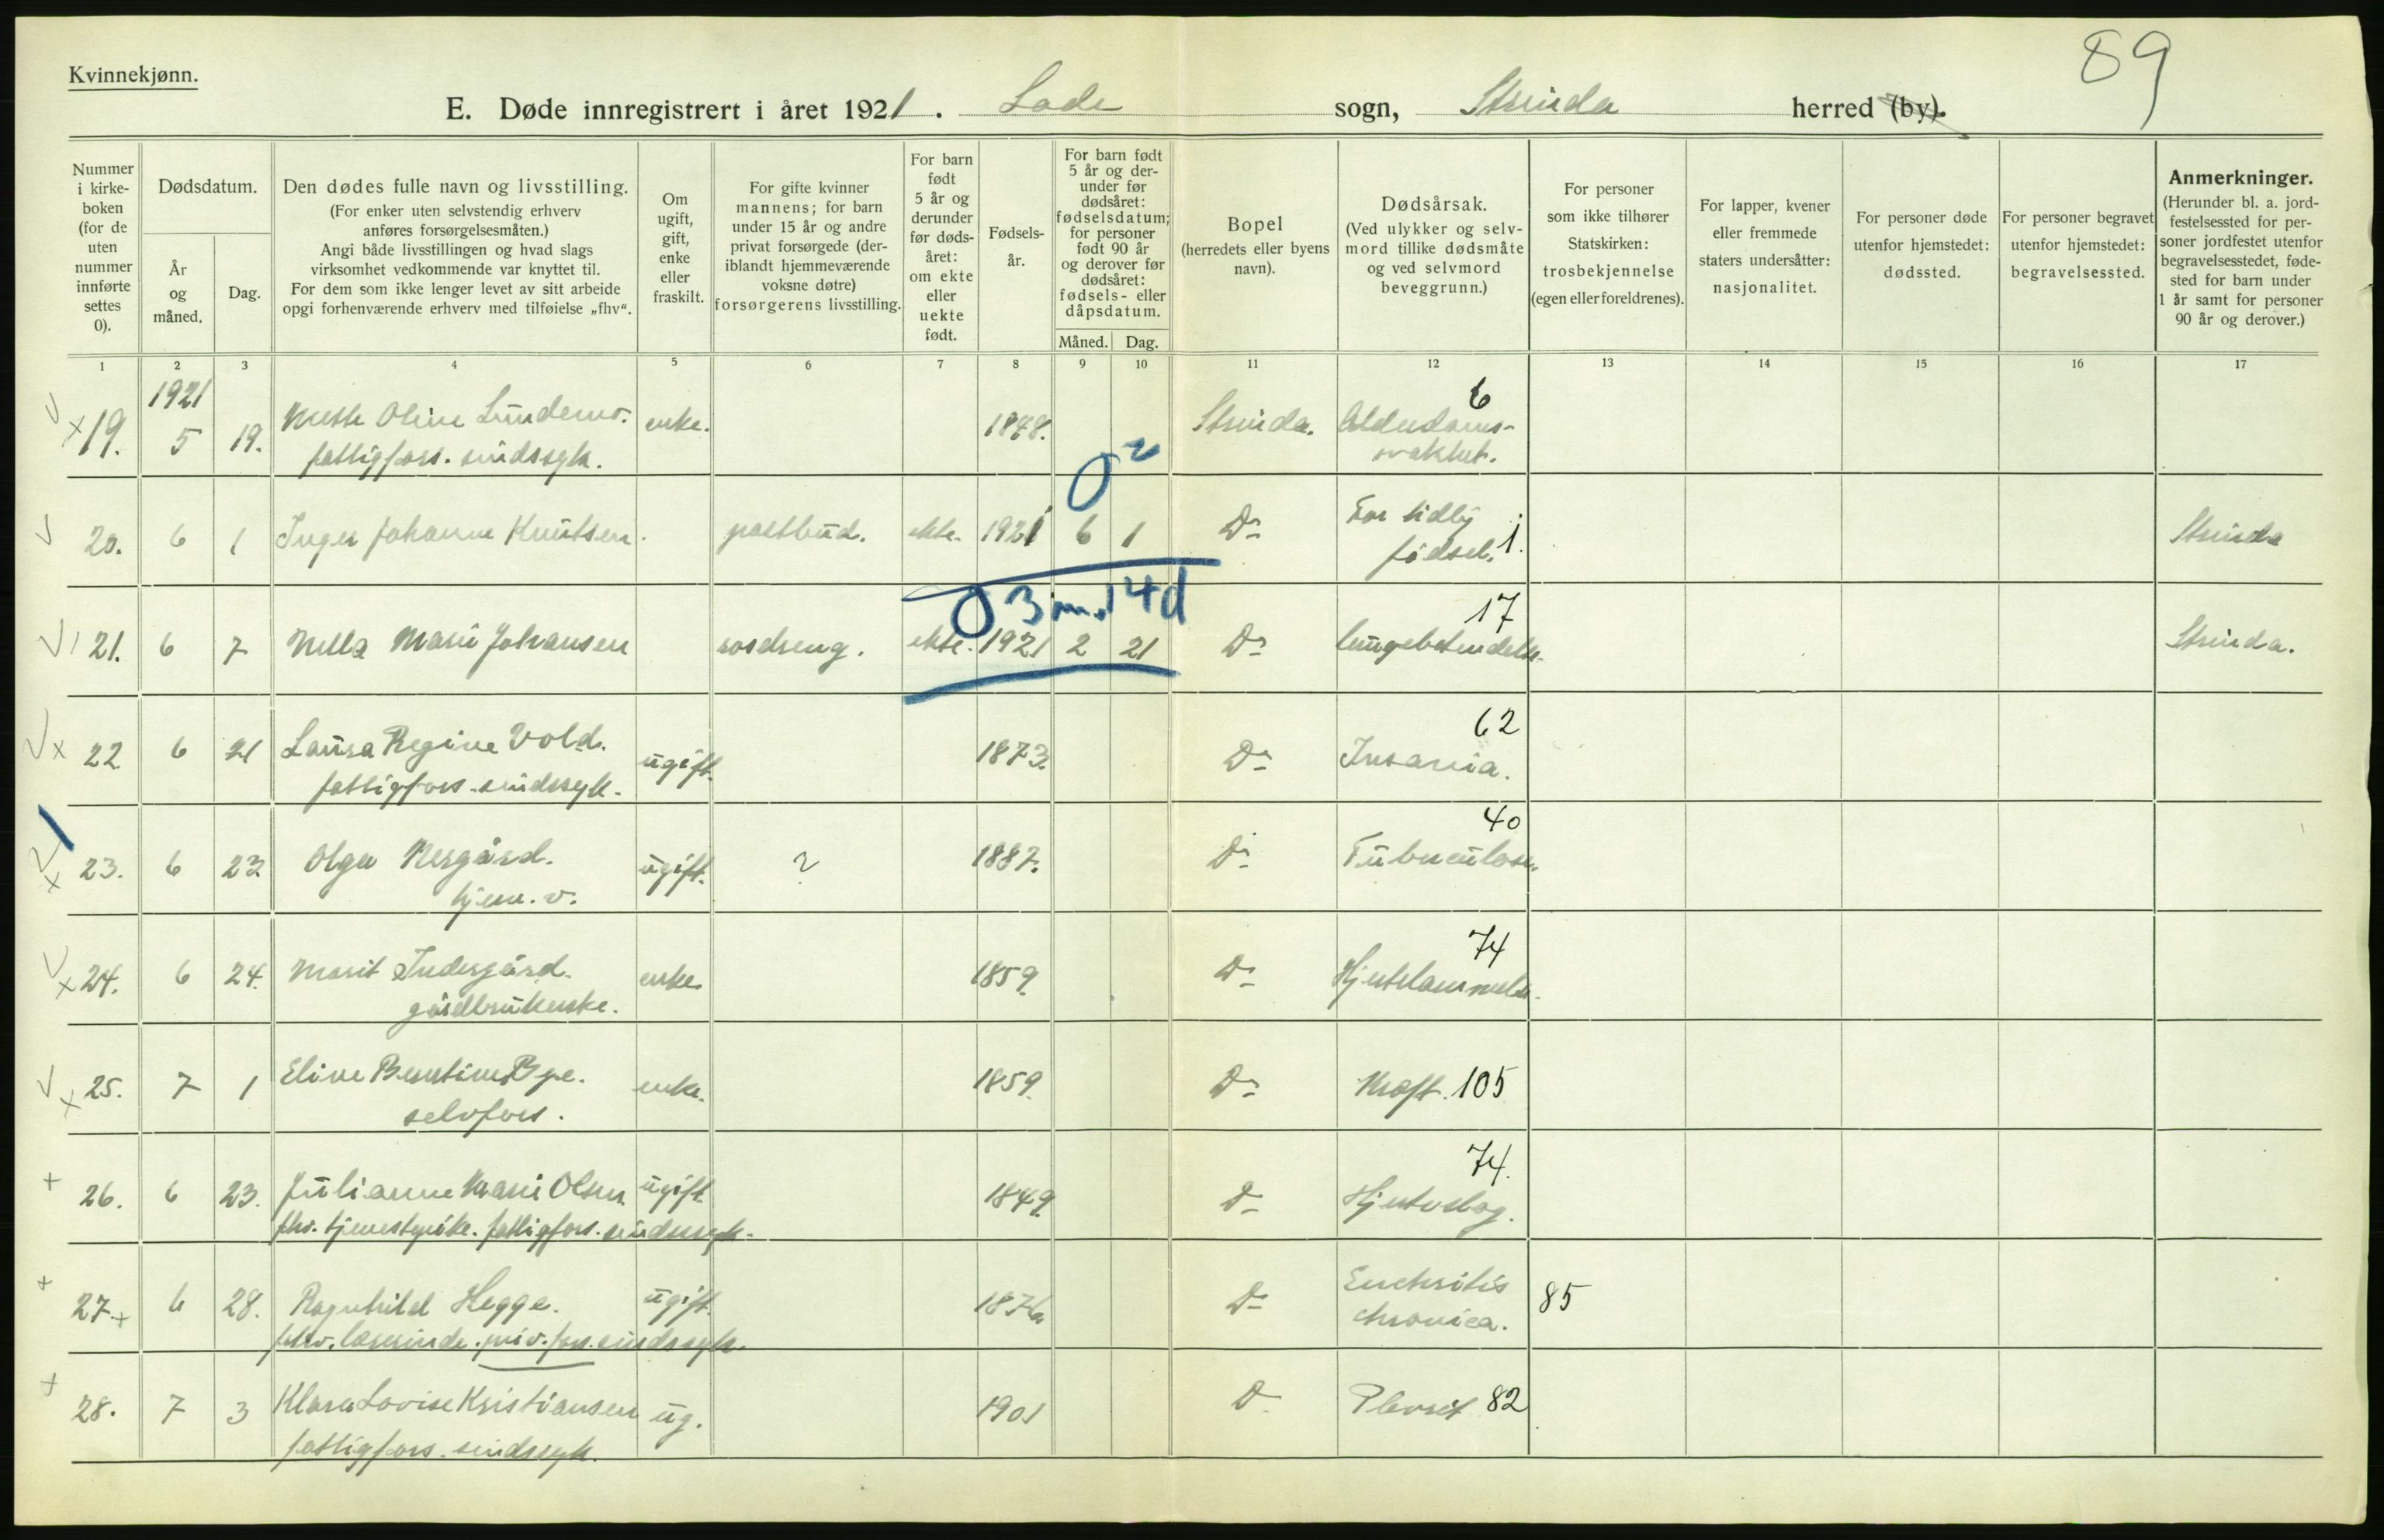 89
Kvinnekjønn.
E. Døde innregistrert i året 1921. Lade sogn, Strinda herred (by).
Nummer i kirke-boken (for de uten nummer innførte settes 0).
Dødsdatum.
År og måned.
Dag.
Den dødes fulle navn og livsstilling.
(For enker uten selvstendig erhverv anføres forsørgelsesmåten.)
Angi både livsstillingen og hvad slags virksomhet vedkommende var knyttet til.
For dem som ikke lenger levet av sitt arbeide opgi forhenværende erhverv med tilføielse „fhv“.
Om ugift, gift, enke eller fraskilt.
For gifte kvinner mannens; for barn under 15 år og andre privat forsørgede (deriblandt hjemmeværende voksne døtre) forsørgerens livsstilling.
For barn født 5 år og derunder før dødsåret: om ekte eller uekte født.
Fødselsår.
For barn født 5 år og derunder før dødsåret: fødselsdatum; for personer født 90 år og derover før dødsåret: fødsels- eller dåpsdatum.
Måned.
Dag.
Bopel (herredets eller byens navn).
Dødsårsak. (Ved ulykker og selvmord tillike dødsmåte og ved selvmord beveggrunn.)
For personer som ikke tilhører Statskirken: trosbekjennelse (egen eller foreldrenes).
For lapper, kvener eller fremmede staters undersåtter: nasjonalitet.
For personer døde utenfor hjemstedet: dødssted.
For personer begravet utenfor hjemstedet: begravelsessted.
Anmerkninger. (Herunder bl. a. jordfestelsessted for personer jordfestet utenfor begravelsesstedet, fødested for barn under 1 år samt for personer 90 år og derover.)
1 2 3 4 5 6 7 8 9 10 11 12 13 14 15 16 17
1921
19. 5 19. Oline Lundemo. enke. 1848. Strinda. Alderdoms- 6
fattigfors. sindssyk. svakhet.
20. 6 1 Inger Johanne Knutsen. postbud. ekte. 1921 6 1 D- For tidlig Strinda
fødsel. 1.
0 3 m. 14 d
21. 6 7 Nella Marie Johansen ekte. 1921 2 21 D- 17 lungebetendelse. Strinda.
22 6 21 Laura Regine Vold. ugift. 1873. D- 62 Insania.
fattigfors. sindssyk.
23. 6 23 Olga Nesgård. ugift. ? 1887. D- 40 Tuberculose.
tjen. v.
24. 6 24. Marit Indergård. enke. 1859. D- 74 Hjertelammelse.
gårdbrukerske.
25. 7 1 Eline Bentine Bye. enke. 1859. D- Kræft. 105
selvfors.
26. 6 23. Julianne Marie Olsen. ugift. 1849. D- 74. Hjerteslag.
fhv. tjenestepike. fattigfors. sindssyk.
27. 6 28. Ragnhild Hegge. ugift. 1876 D- Enteritis 85
fhv. lærerinde. priv. fors. sindssyk. chronica.
28. 7 3 Klara Lovise Kristiansen ug. 1901 D- Plevrit 82
fattigfors. sindssyk.